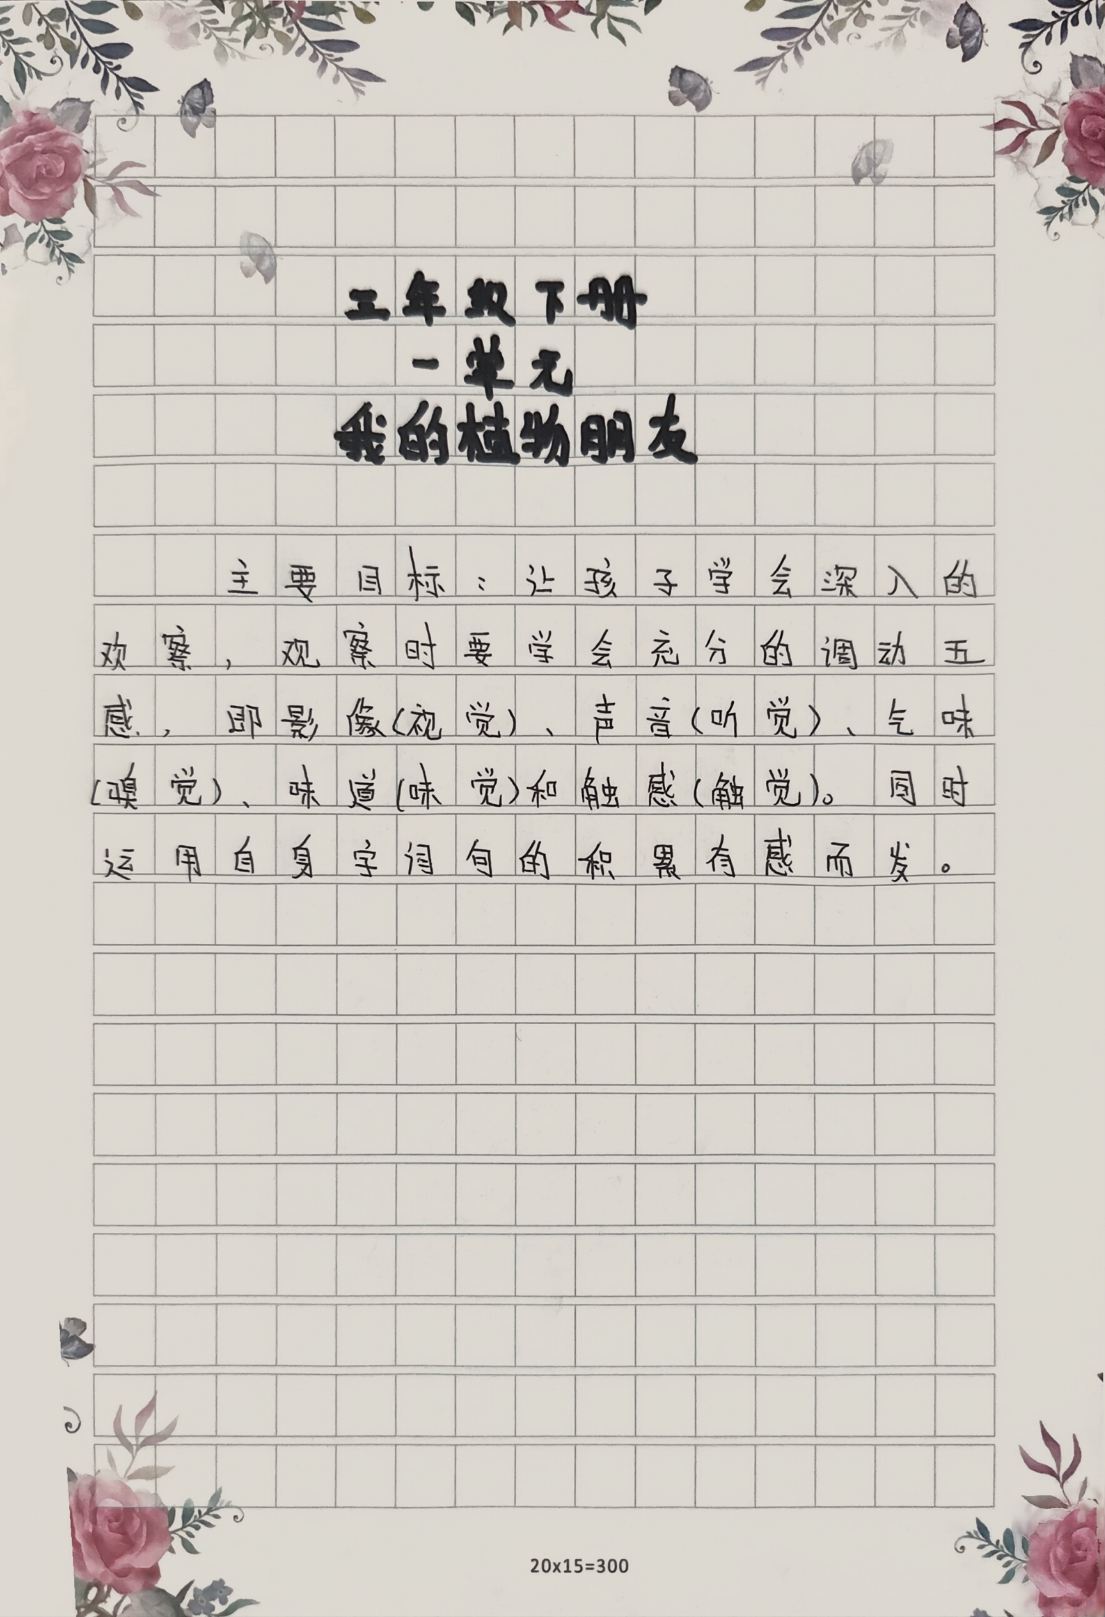 三年级下册
一单元
我的植物朋友
主要目标：让孩子学会深入的
观察，观察时要学会充分的调动五
感，即影像(视觉)、声音(听觉)、气味
(嗅觉)、味道(味觉)和触感(触觉)。同时
运用自身字词句的积累有感而发。
20x15=300